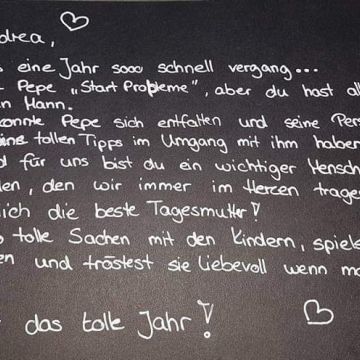 drea,
s eine Jahr sooo schnell vergang...
r Pepe "Start Probleme", aber du hast all
n Mann.
konnte Pepe sich entfalten und seine Per
eine tollen Tipps im Umgang mit ihm haben
d für uns bist du ein wichtiger Mensch
en, den wir immer im Herzen trage
ich die beste Tagesmutter!
o tolle Sachen mit den Kindern, spiels
en und tröstest sie liebevoll wenn ma
r das tolle Jahr!